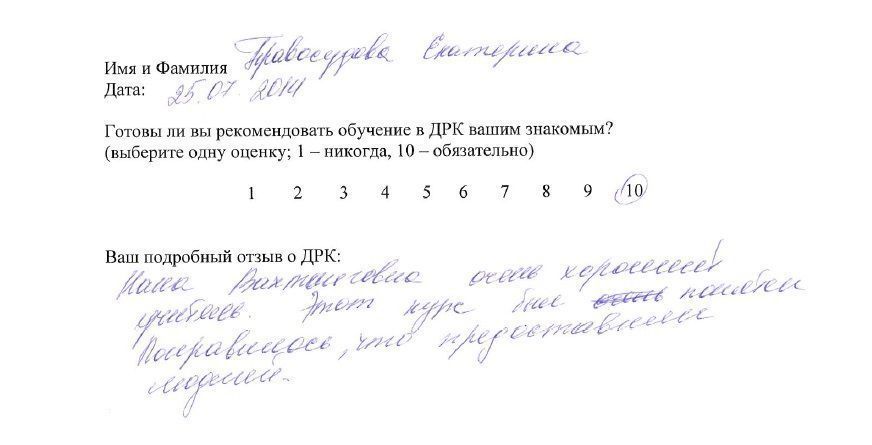 Имя и Фамилия Правосудова Екатерина
Дата: 25.07.2014
Готовы ли вы рекомендовать обучение в ДРК вашим знакомым?
(выберите одну оценку; 1 – никогда, 10 – обязательно)
1 2 3 4 5 6 7 8 9 10
Ваш подробный отзыв о ДРК:
Вахтанговна очень хороший
учитель. Этот курс был понятен
Понравилось, что предоставили
моделей.